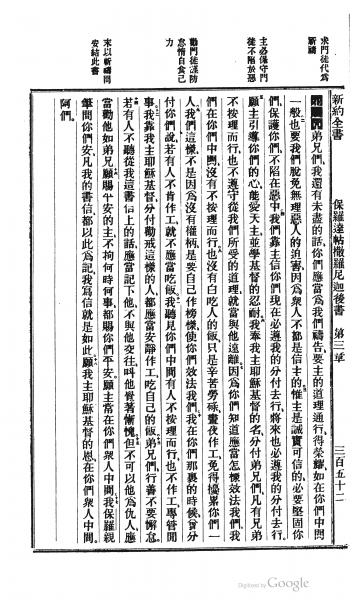 新約全書
保羅達帖撒羅尼迦後書
第三章
三百五十二
求門徒代為
祈禱
主必保守門
徒不陷於惡
勸門徒謹防
怠惰自食己
力
末以祈禱問
安結此書
弟兄們、我還有未盡的話、你們應當為我們禱告、要主的道理通行、得榮耀、如在你們中間
一般、也要我們脫免無理惡人的迫害、因為衆人不都是信主的、惟主是誠實可信的、必要堅固你
們、保護你們、不陷在惡中、我們靠主信你們現在必遵我的分付去行、將來也必遵我的分付去行、
願主引導你們的心、能愛天主、並學基督的忍耐、我奉我主耶穌基督的名、分付弟兄們、凡有弟兄
不按理而行、也不遵守從我們所受的道理、就當與他遠離、因為你們知道應當怎樣效法我們、我
們在你們中間、沒有不按理而行、也沒有白吃人的飯、只是辛苦勞碌、晝夜作工、免得擾累你們一
人、我們這樣、不是因為沒有權柄、是要自己作榜樣、使你們效法我們、我在你們那裏的時候、曾分
付你們說、若有人不肯作工、就不應當吃飯、我聽見你們中間有人不按理而行、也不作工、專管閒
事、我靠我主耶穌基督、分付勸戒這樣的人、都應當安靜作工、吃自己的飯、弟兄們、行善不要懈怠、
若有人不聽從我這書信上的話、應當記下他、不與他交往、叫他覺著慚愧、但不可以他為仇人、應
當勸他如弟兄、願賜平安的主、不拘何時何事、都賜你們平安、願主常在你們衆人中間、我保羅親
筆問你們安、凡我的書信、都以此為記、我寫信就是如此、願我主耶穌基督的恩、在你們衆人中間、
阿們、
Digitized by Google